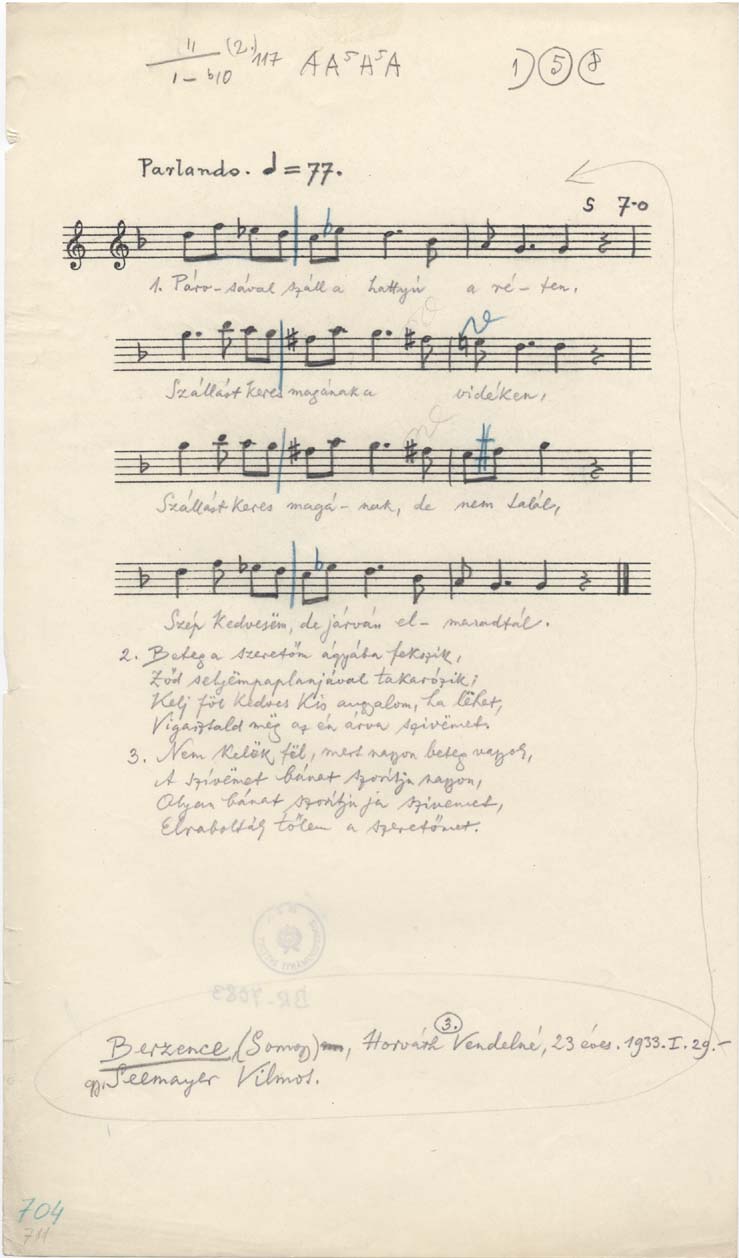 11 (2.) 117 A A⁵ A⁵ A 1) 5 8
1 – b10
Parlando. ♩ = 77.
5 7-0
1. Páro-sával száll a hattyú a ré-ten,
Szállást keres magának a vidéken,
Szállást keres magá-nak, de nem talál,
Szép kedvesëm, de járván el-maradtál.
2. Beteg a szeretőm ágyába fekszik,
Ződ selyëmpaplanjával takarózik;
Kelj föl kedves kis angyalom, ha lëhet,
Vigasztald mëg az én árva szivëmet.
3. Nem kelëk fël, mert nagyon beteg vagyok,
A szívëmet bánat szorítja nagyon,
Olyan bánat szorítja szivemet,
Elrabolták tőlem a szeretőmet.
BR-7083
Berzence (Somogy), Horváth Vendelné, 23 éves. 1933. I. 29.
3.
gy. Seemayer Vilmos.
704
711